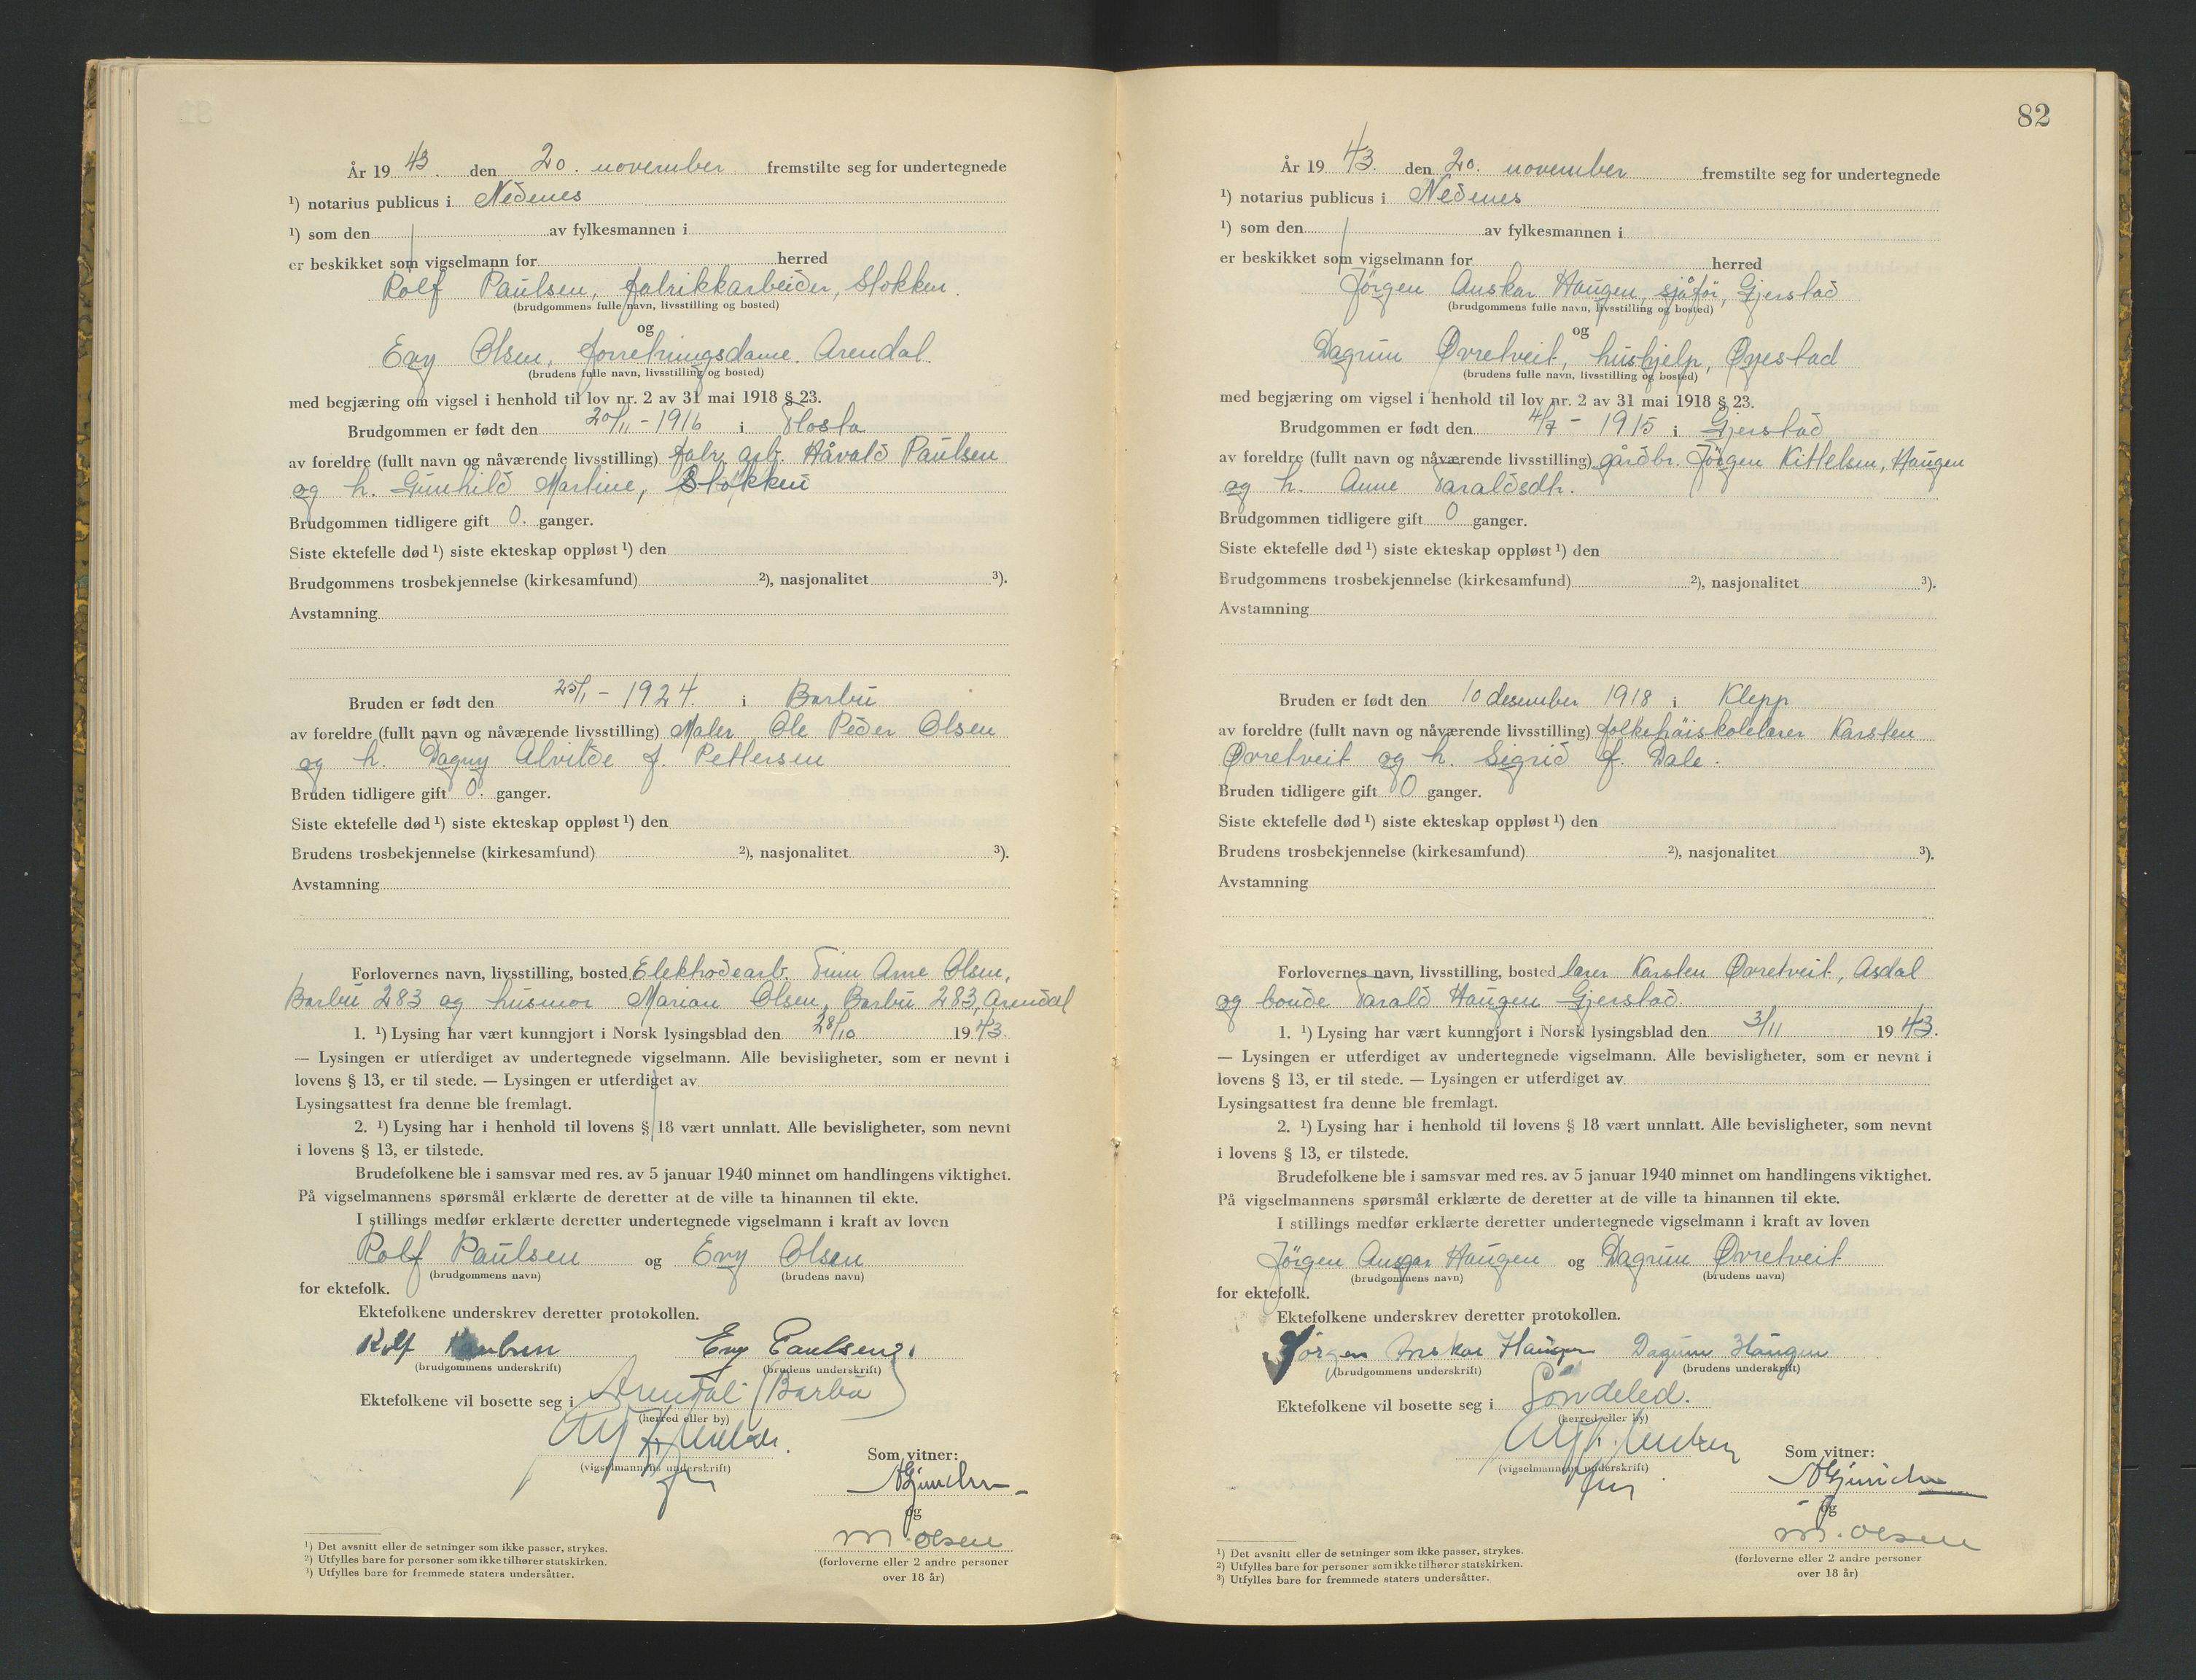 År 19 43. den 20. november fremstilte seg for undertegnede
¹) notarius publicus i Nedenes
¹) som den av fylkesmannen i
er beskikket som vigselmann for herred
Rolf Paulsen, fabrikkarbeider, Stokken.
(brudgommens fulle navn, livsstilling og bosted)
og
Evy Olsen, forretningsdame. Arendal.
(brudens fulle navn, livsstilling og bosted)
med begjæring om vigsel i henhold til lov nr. 2 av 31 mai 1918 § 23.
Brudgommen er født den 20/11 - 1916 i Flosta
av foreldre (fullt navn og nåværende livsstilling) fabr. arb. Håvald Paulsen
og h. Gunhild Martine, Stokken
Brudgommen tidligere gift 0. ganger.
Siste ektefelle død ¹) siste ekteskap oppløst ¹) den
Brudgommens trosbekjennelse (kirkesamfund) ²), nasjonalitet ³).
Avstamning
Bruden er født den 25/1 - 1924. i Barbu
av foreldre (fullt navn og nåværende livsstilling) Maler Ole Peder Olsen
og h. Dagny Alvilde f. Pettersen
Bruden tidligere gift 0. ganger.
Siste ektefelle død ¹) siste ekteskap oppløst ¹) den
Brudens trosbekjennelse (kirkesamfund) ²), nasjonalitet ³).
Avstamning
Forlovernes navn, livsstilling, bosted Elektrodearb. Finn Arne Olsen,
Barbu 283 og husmor Marian Olsen, Barbu 283, Arendal
1. ¹) Lysing har vært kunngjort i Norsk lysingsblad den 28/10 19 43.
— Lysingen er utferdiget av undertegnede vigselmann. Alle bevisligheter, som er nevnt i
lovens § 13, er til stede. — Lysingen er utferdiget av
Lysingsattest fra denne ble fremlagt.
2. ¹) Lysing har i henhold til lovens § 18 vært unnlatt. Alle bevisligheter, som nevnt
i lovens § 13, er tilstede.
Brudefolkene ble i samsvar med res. av 5 januar 1940 minnet om handlingens viktighet.
På vigselmannens spørsmål erklærte de deretter at de ville ta hinannen til ekte.
I stillings medfør erklærte deretter undertegnede vigselmann i kraft av loven
Rolf Paulsen og Evy Olsen
(brudgommens navn) (brudens navn)
for ektefolk.
Ektefolkene underskrev deretter protokollen.
Rolf Paulsen Evy Paulsen
(brudgommens underskrift) (brudens underskrift)
Ektefolkene vil bosette seg i Arendal (Barbu)
(herred eller by)
Som vitner:
(vigselmannens underskrift)
og
M. Olsen
(forloverne eller 2 andre personer
over 18 år)
¹) Det avsnitt eller de setninger som ikke passer, strykes.
²) Utfylles bare for personer som ikke tilhører statskirken.
³) Utfylles bare for fremmede staters undersåtter.
82
År 19 43. den 20. november fremstilte seg for undertegnede
¹) notarius publicus i Nedenes
¹) som den av fylkesmannen i
er beskikket som vigselmann for herred
Jörgen Anskar Haugen, sjåför, Gjerstad
(brudgommens fulle navn, livsstilling og bosted)
og
Dagrun Øvretveit, hushjelp, Øyestad
(brudens fulle navn, livsstilling og bosted)
med begjæring om vigsel i henhold til lov nr. 2 av 31 mai 1918 § 23.
Brudgommen er født den 4/7 - 1915 i Gjerstad
av foreldre (fullt navn og nåværende livsstilling) gårdbr. Jörgen Kittelsen, Haugen
og h. Anne Taraldsdtr.
Brudgommen tidligere gift 0 ganger.
Siste ektefelle død ¹) siste ekteskap oppløst ¹) den
Brudgommens trosbekjennelse (kirkesamfund) ²), nasjonalitet ³).
Avstamning
Bruden er født den 10 desember 1918 i Klepp
av foreldre (fullt navn og nåværende livsstilling) folkehöiskolelærer Karsten
Øvretveit og h. Sigrid f. Dale.
Bruden tidligere gift 0 ganger.
Siste ektefelle død ¹) siste ekteskap oppløst ¹) den
Brudens trosbekjennelse (kirkesamfund) ²), nasjonalitet ³).
Avstamning
Forlovernes navn, livsstilling, bosted lærer Karsten Øvretveit, Asdal
og bonde Tarald Haugen Gjerstad.
1. ¹) Lysing har vært kunngjort i Norsk lysingsblad den 3/11 19 43.
— Lysingen er utferdiget av undertegnede vigselmann. Alle bevisligheter, som er nevnt i
lovens § 13, er til stede. — Lysingen er utferdiget av
Lysingsattest fra denne ble fremlagt.
2. ¹) Lysing har i henhold til lovens § 18 vært unnlatt. Alle bevisligheter, som nevnt
i lovens § 13, er tilstede.
Brudefolkene ble i samsvar med res. av 5 januar 1940 minnet om handlingens viktighet.
På vigselmannens spørsmål erklærte de deretter at de ville ta hinannen til ekte.
I stillings medfør erklærte deretter undertegnede vigselmann i kraft av loven
Jörgen Ansgar Haugen og Dagrun Øvretveit
(brudgommens navn) (brudens navn)
for ektefolk.
Ektefolkene underskrev deretter protokollen.
Jörgen Anskar Haugen Dagrun Haugen
(brudgommens underskrift) (brudens underskrift)
Ektefolkene vil bosette seg i Söndeled.
(herred eller by)
Som vitner:
(vigselmannens underskrift)
og
M. Olsen
(forloverne eller 2 andre personer
over 18 år)
¹) Det avsnitt eller de setninger som ikke passer, strykes.
²) Utfylles bare for personer som ikke tilhører statskirken.
³) Utfylles bare for fremmede staters undersåtter.